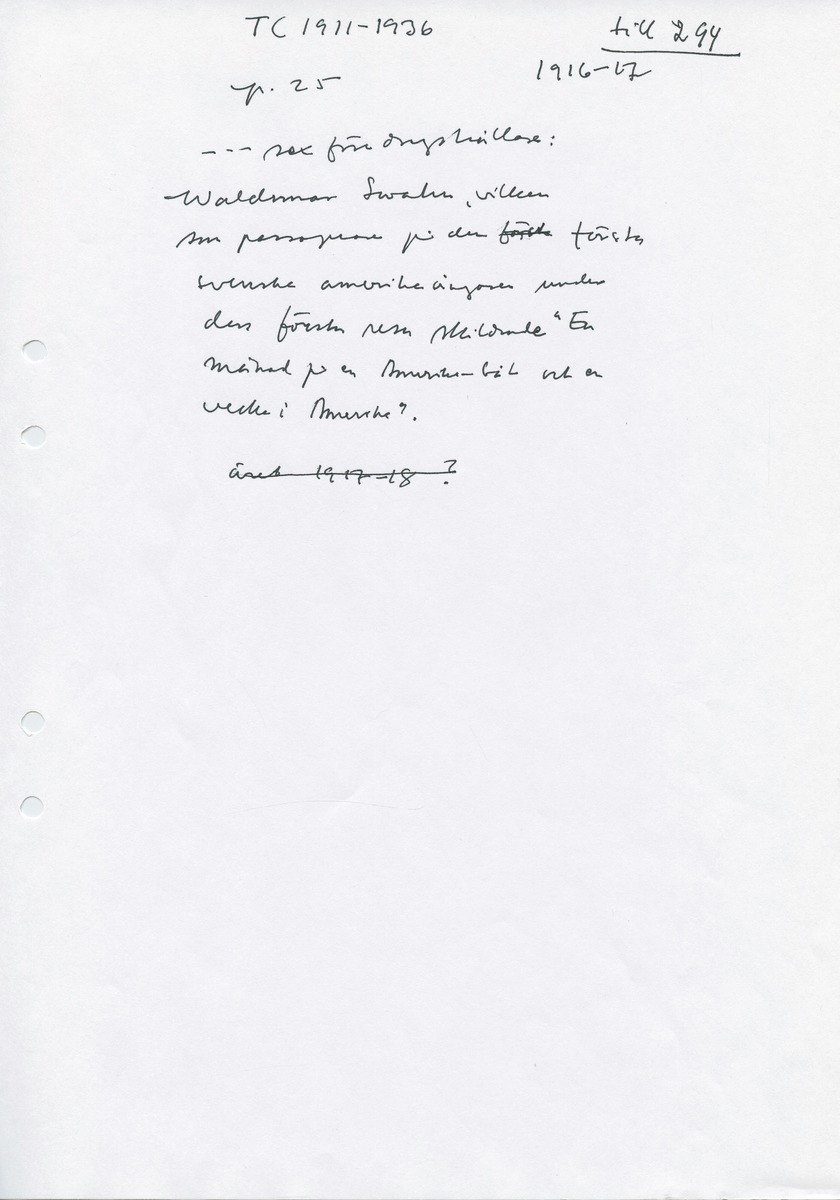 TC 1911-1936
till 294
1916-17
p. 25
--- sex föredragshållare:
Waldemar Swahn, vilken
som passagerare på den första första
svenska amerikaångaren under
dess första resa skildrade "En
månad på en Amerika-båt och en
vecka i Amerika".
året 1917-18 ?